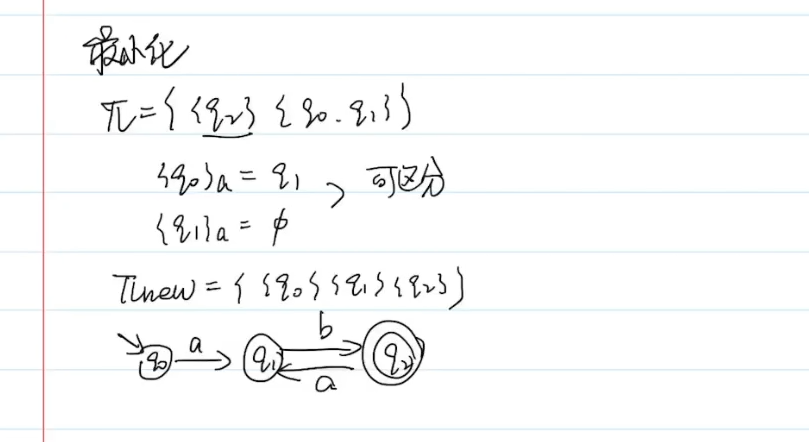 最小化
π = { {q₂} {q₀. q₁} }
{q₀}a = q₁
可区分
{q₁}a = φ
πnew = { {q₀} {q₁} {q₂} }
q₀ a q₁ b a q₂